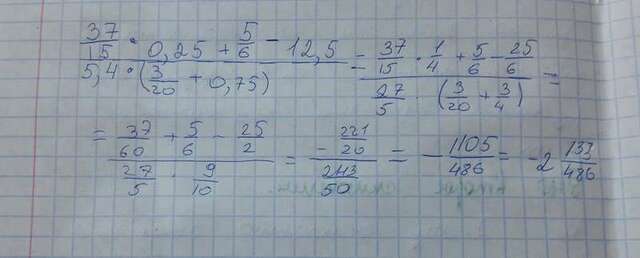 37/15 · 0,25 + 5/6 - 12,5 / 5,4 · (3/20 + 0,75) = 37/15 · 1/4 + 5/6 - 25/6 / 27/5 · (3/20 + 3/4) =
= 37/60 + 5/6 - 25/2 / 27/5 · 9/10 = - 221/20 / 243/50 = - 1105/486 = -2 133/486